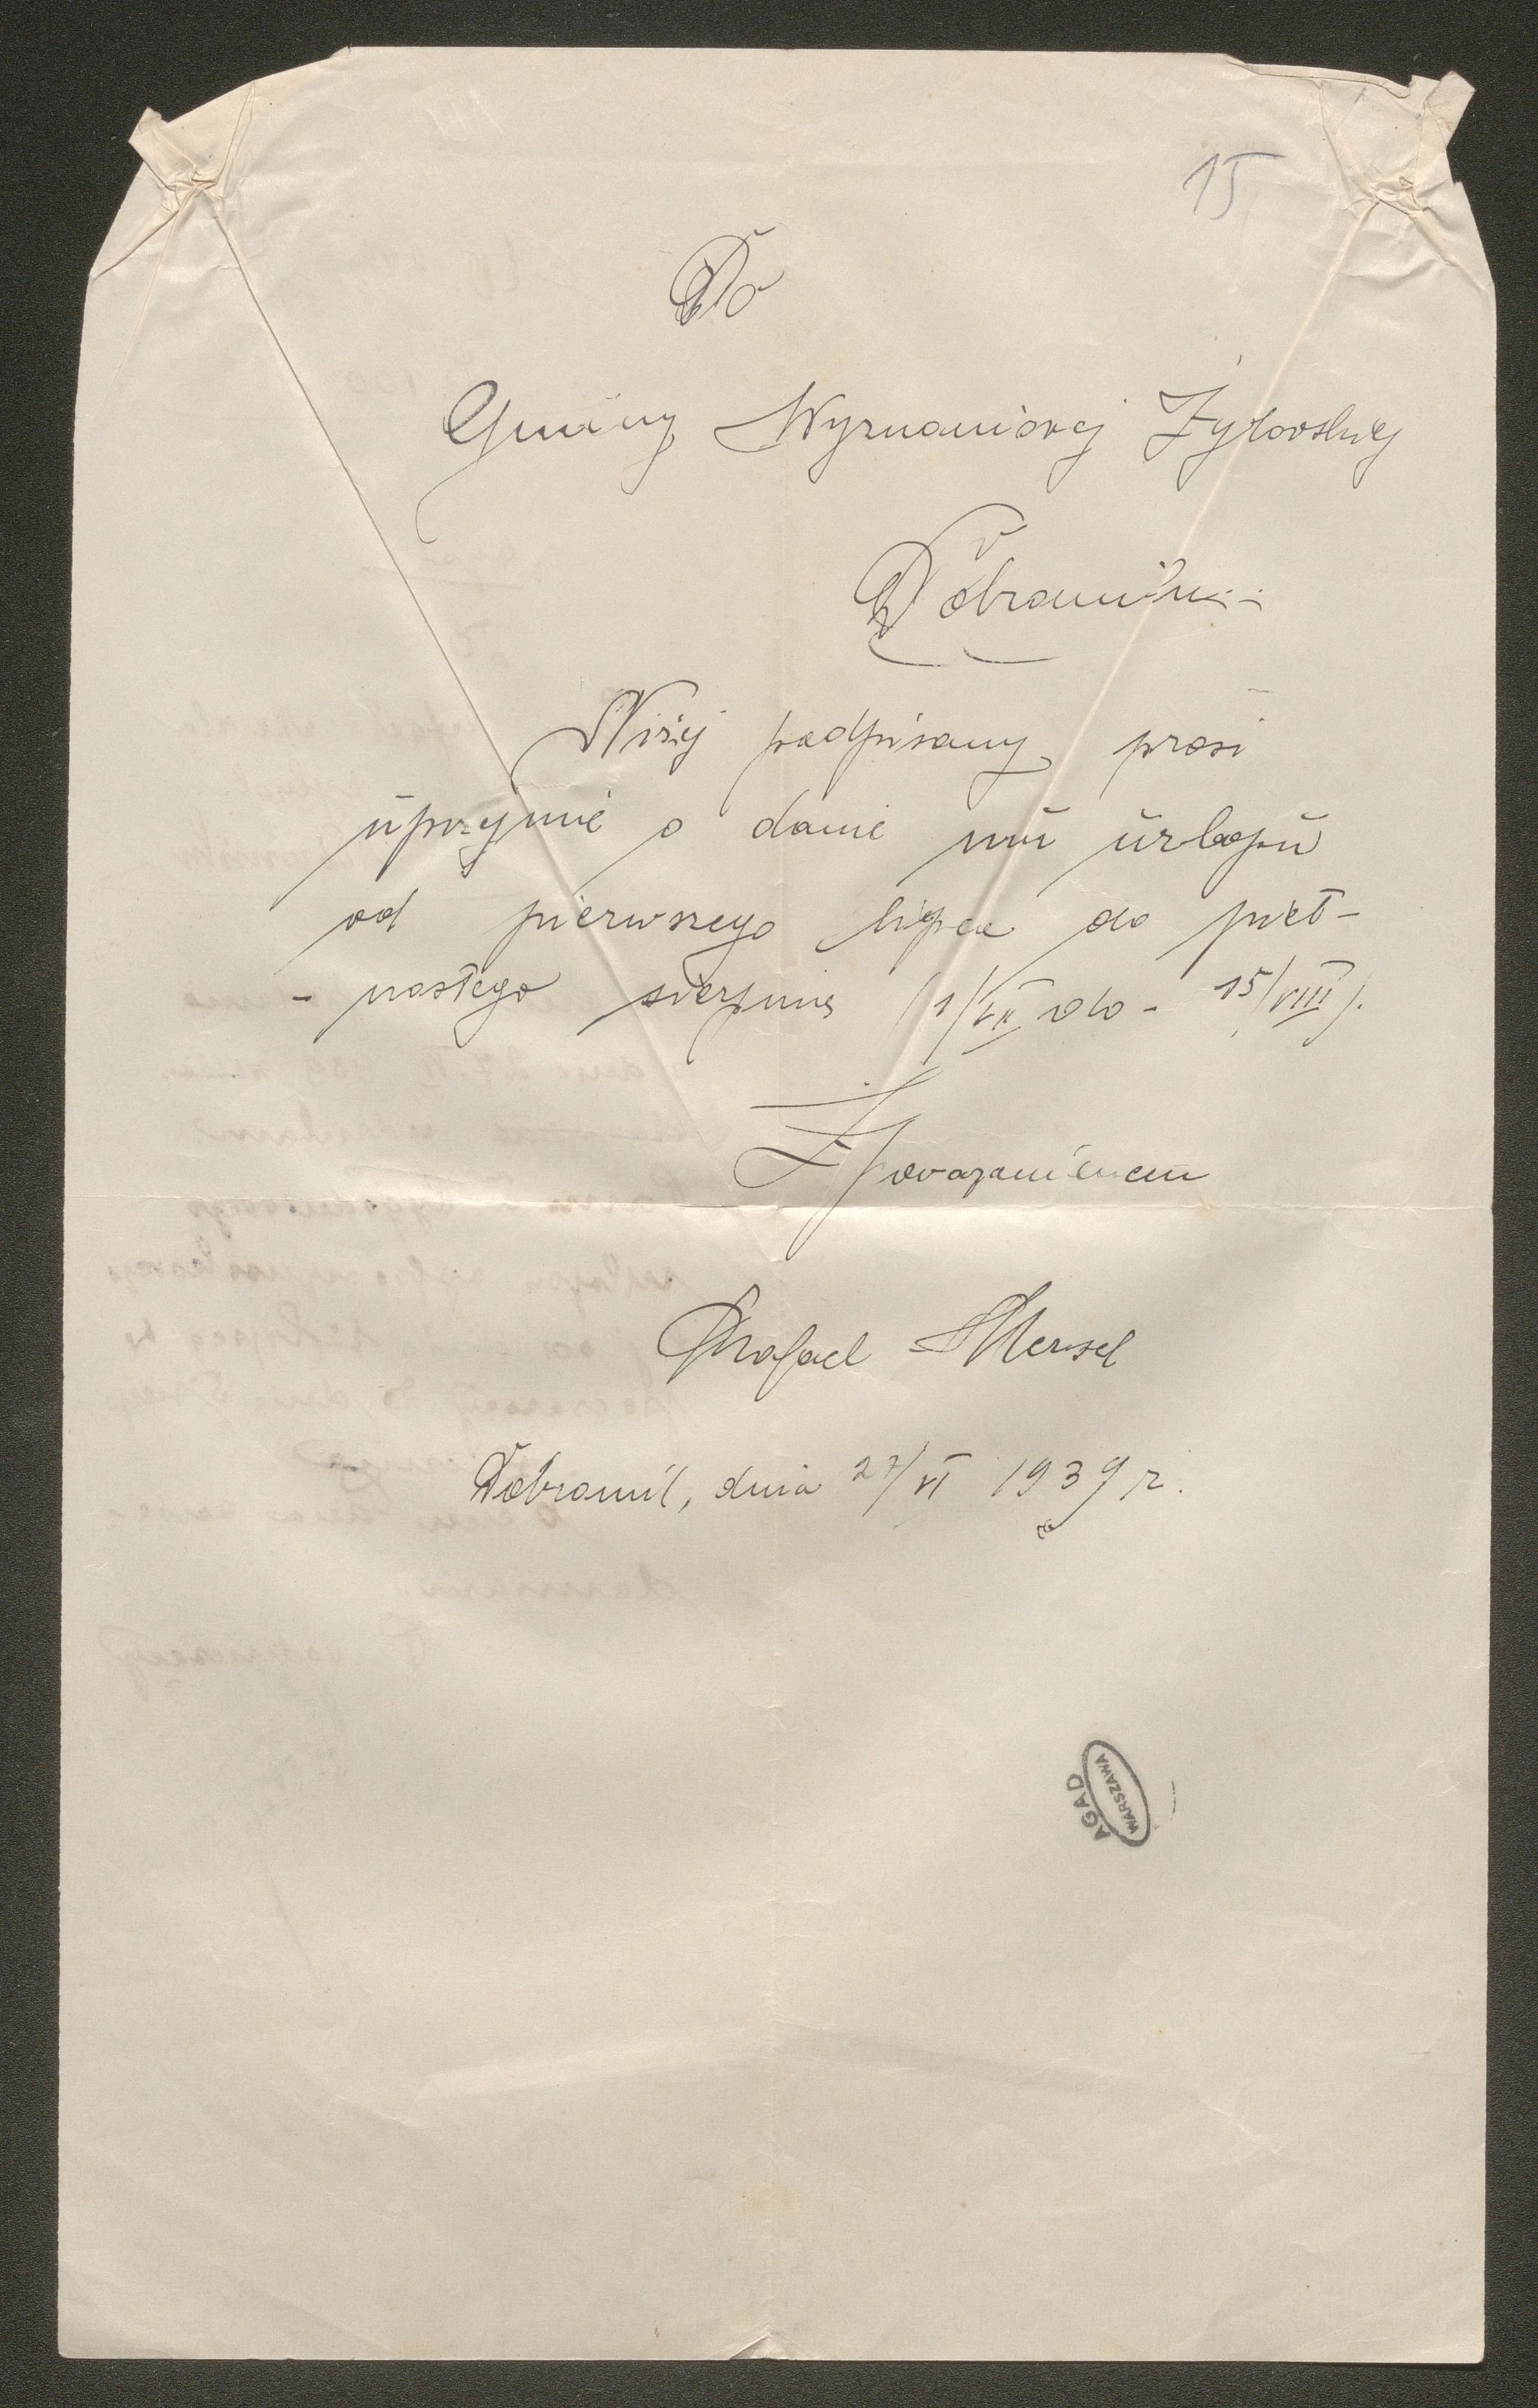 15
Do
Gminy Wyznaniowej Żydowskiej
w
Dobromilu
Niżej podpisany prosi
uprzejmie o danie mu urlopu
od pierwszego lipca do pięt-
- nastego sierpnia (1/VII do - 15/VIII).
Z powazaniem
Rafael Mensel
Dobromil, dnia 27/VI 1939 r.
AGAD
WARSZAWA